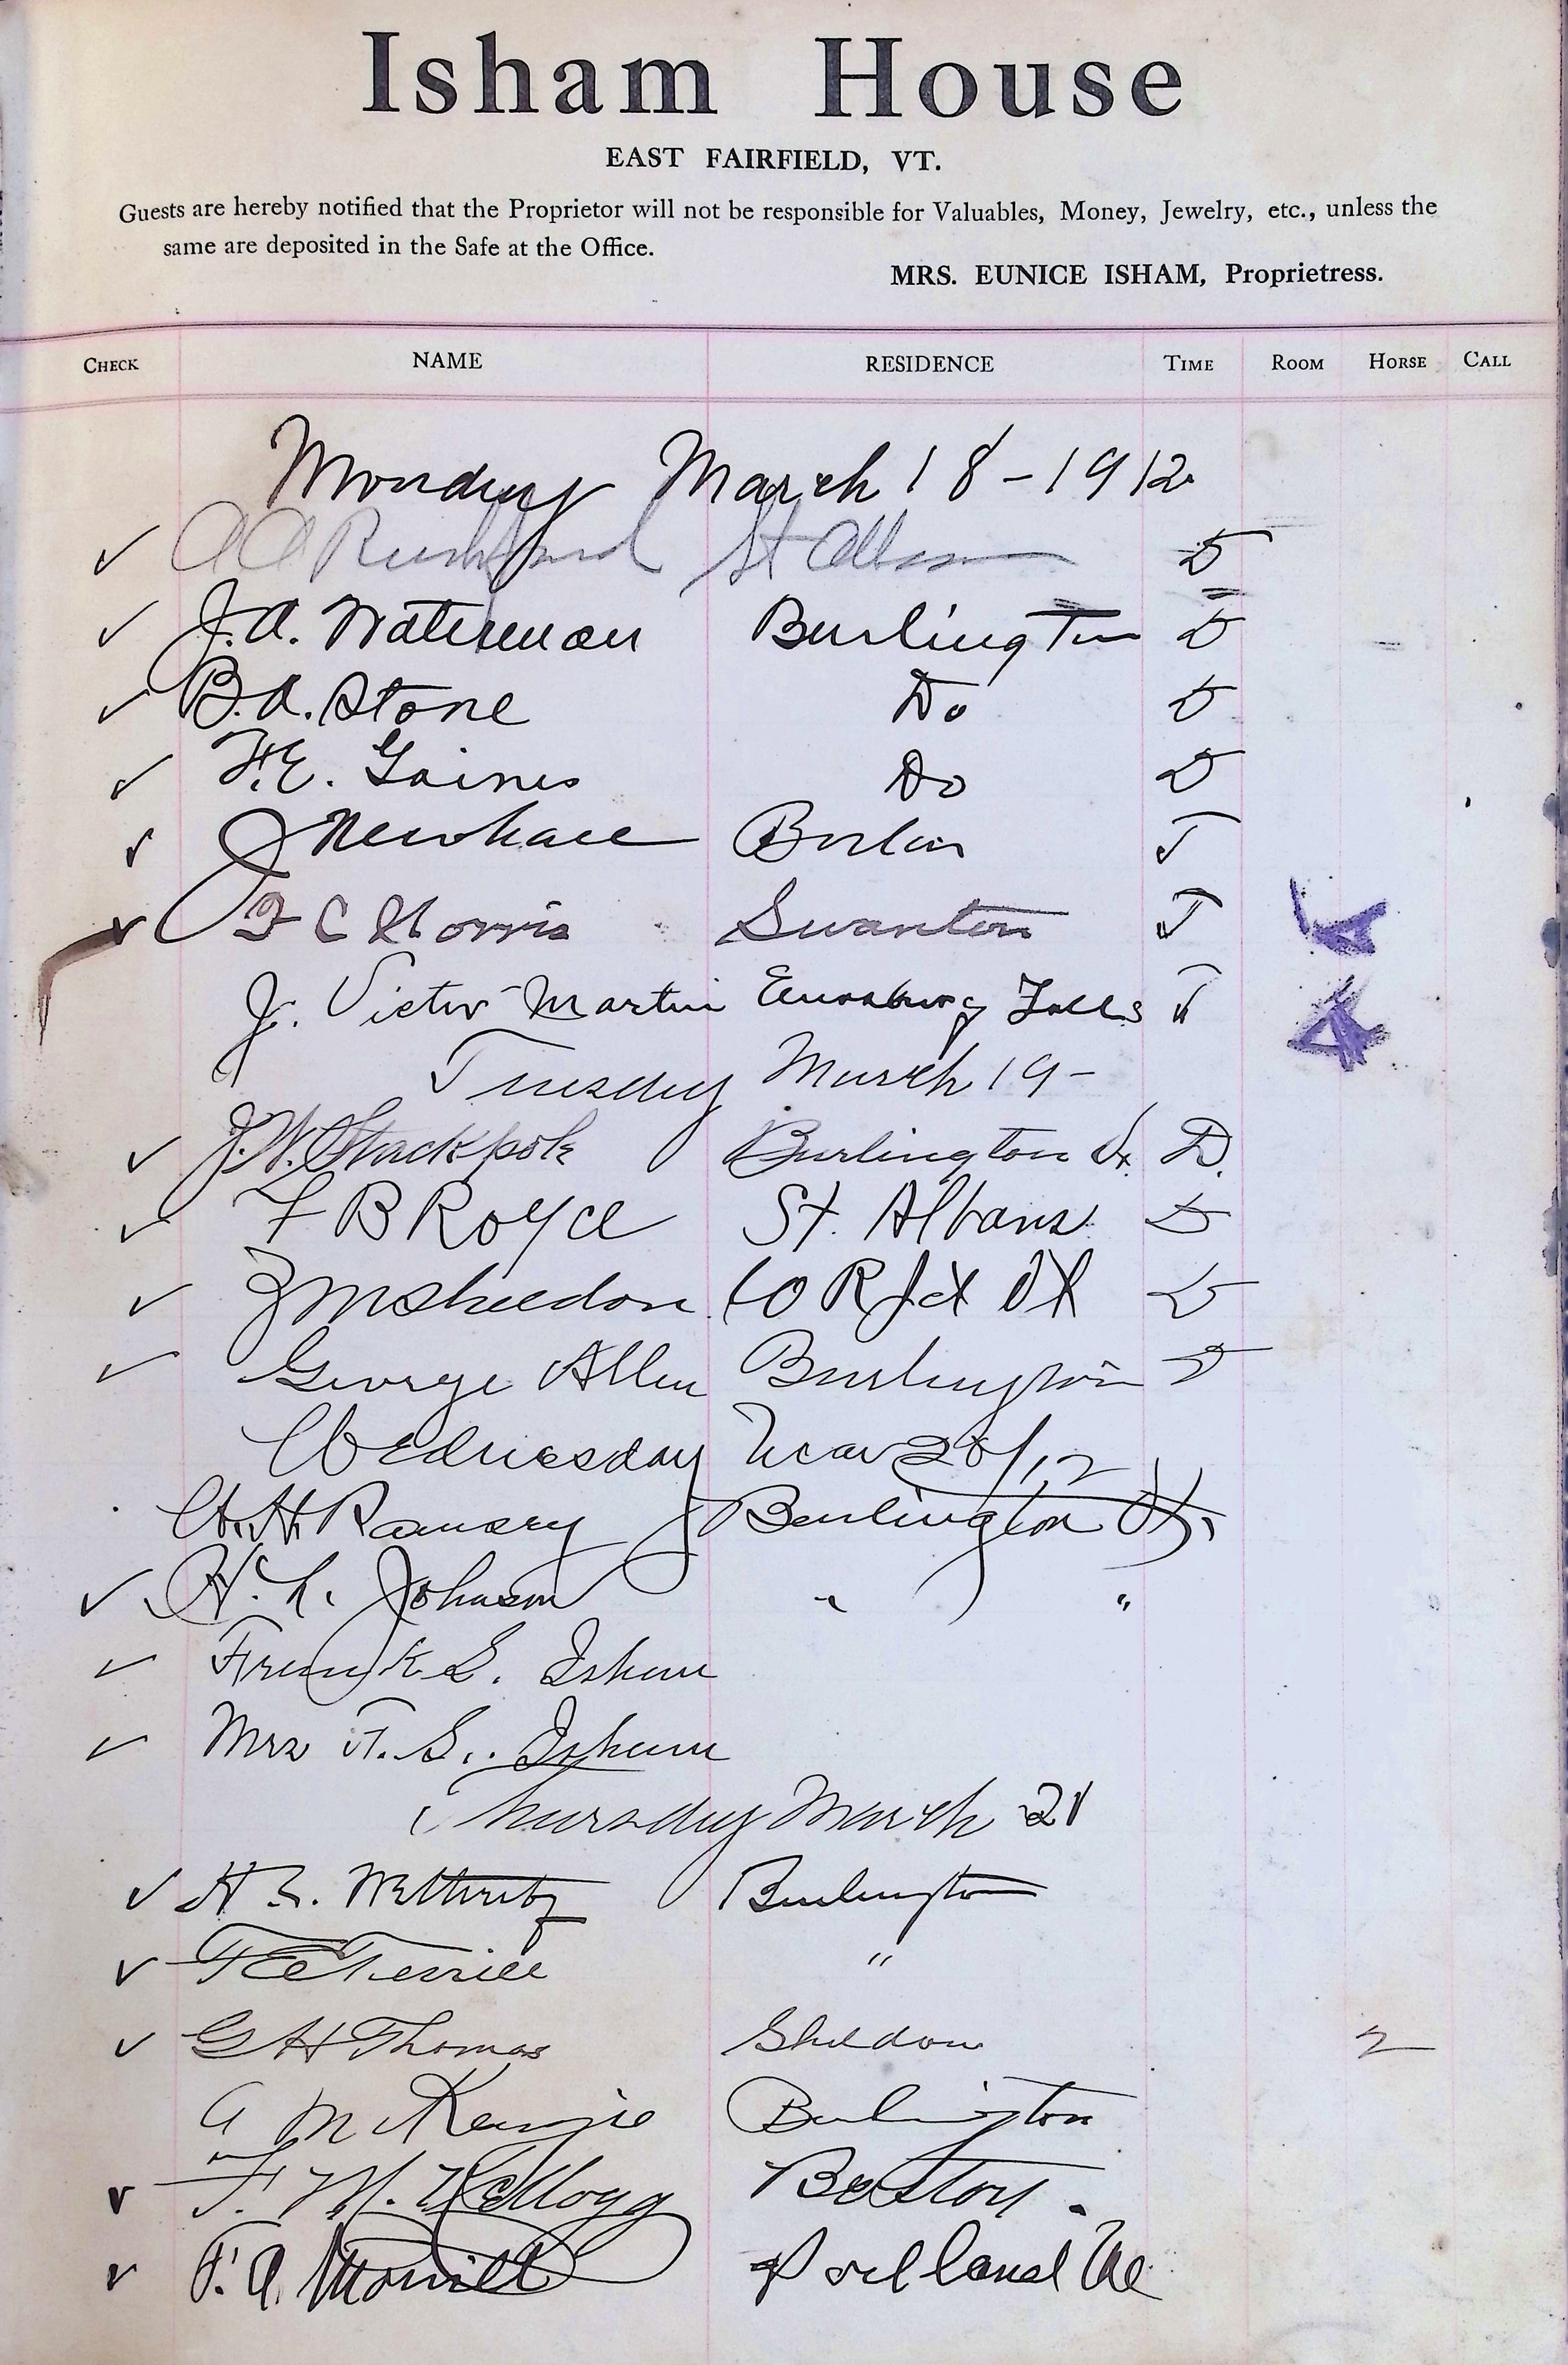 Isham House
EAST FAIRFIELD, VT.
Guests are hereby notified that the Proprietor will not be responsible for Valuables, Money, Jewelry, etc., unless the
same are deposited in the Safe at the Office.
MRS. EUNICE ISHAM, Proprietress.
CHECK NAME RESIDENCE TIME ROOM HORSE CALL
Monday March 18-1912
✓ St Albans D
✓ J.A. Waterman Burlington D
✓ B.A. Stone Do D
✓ F.E. Gaines Do D
✓ J Newhall T
✓ F C Norris Swanton T
J. Victor Martin Enosburg Falls T
Tuesday March 19-
✓ J.W. Stackpole Burlington Vt. D.
✓ F B Royce St. Albans D
✓ D
✓ George Allen Burlington D
Wednesday Mar 20/12
Ramsey Burlington Vt.
✓ H. L. Johnson " "
✓ Frank S. Isham
✓ Mrs F. S. Isham
Thursday March 21
✓ Burlington
✓ F E Terrill "
✓ G H Thomas Sheldon 2
McKenzie Burlington
✓ F. M. Kellogg Boston.
✓ F. A. Morrill Portland Me